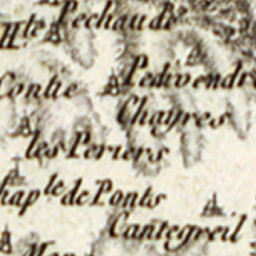 H.te Pechaud
Contie Pedivendr
Chayres
les Periers
hap.le de Ponts
Cantegreil